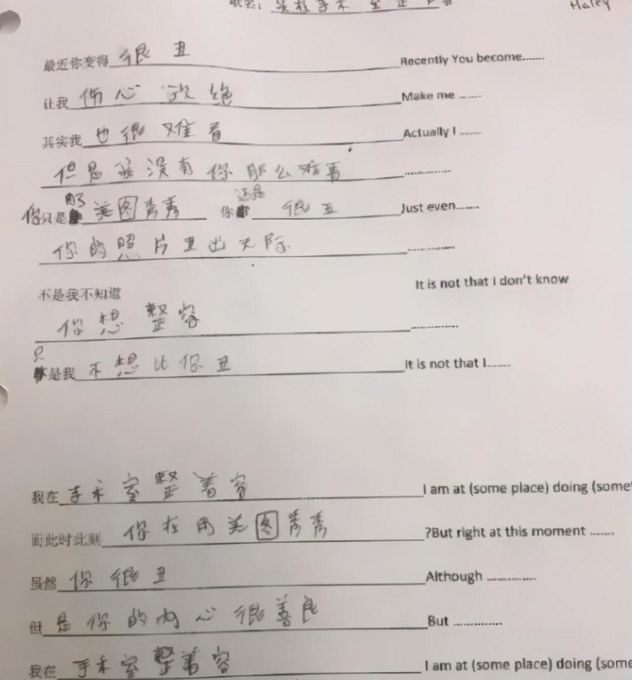 歌名: 没in手术室整着容
Haley
最近你变得 很丑 Recently You become.......
让我 伤心欲绝 Make me .......
其实我 也很难看 Actually I .......
但是我没有你那么难看 ..............
你只是用美图秀秀 你还是很丑 Just even.......
你的照片丑出天际 ..............
不是我不知道 It is not that I don't know
你想整容 ..............
只是我不想比你丑 It is not that I.......
我在手术室整着容 I am at (some place) doing (some
而此时此刻 你在用美图秀秀 ?But right at this moment .......
虽然你很丑 Although ..............
但是你的内心很善良 But ..............
我在手术室整着容 I am at (some place) doing (some